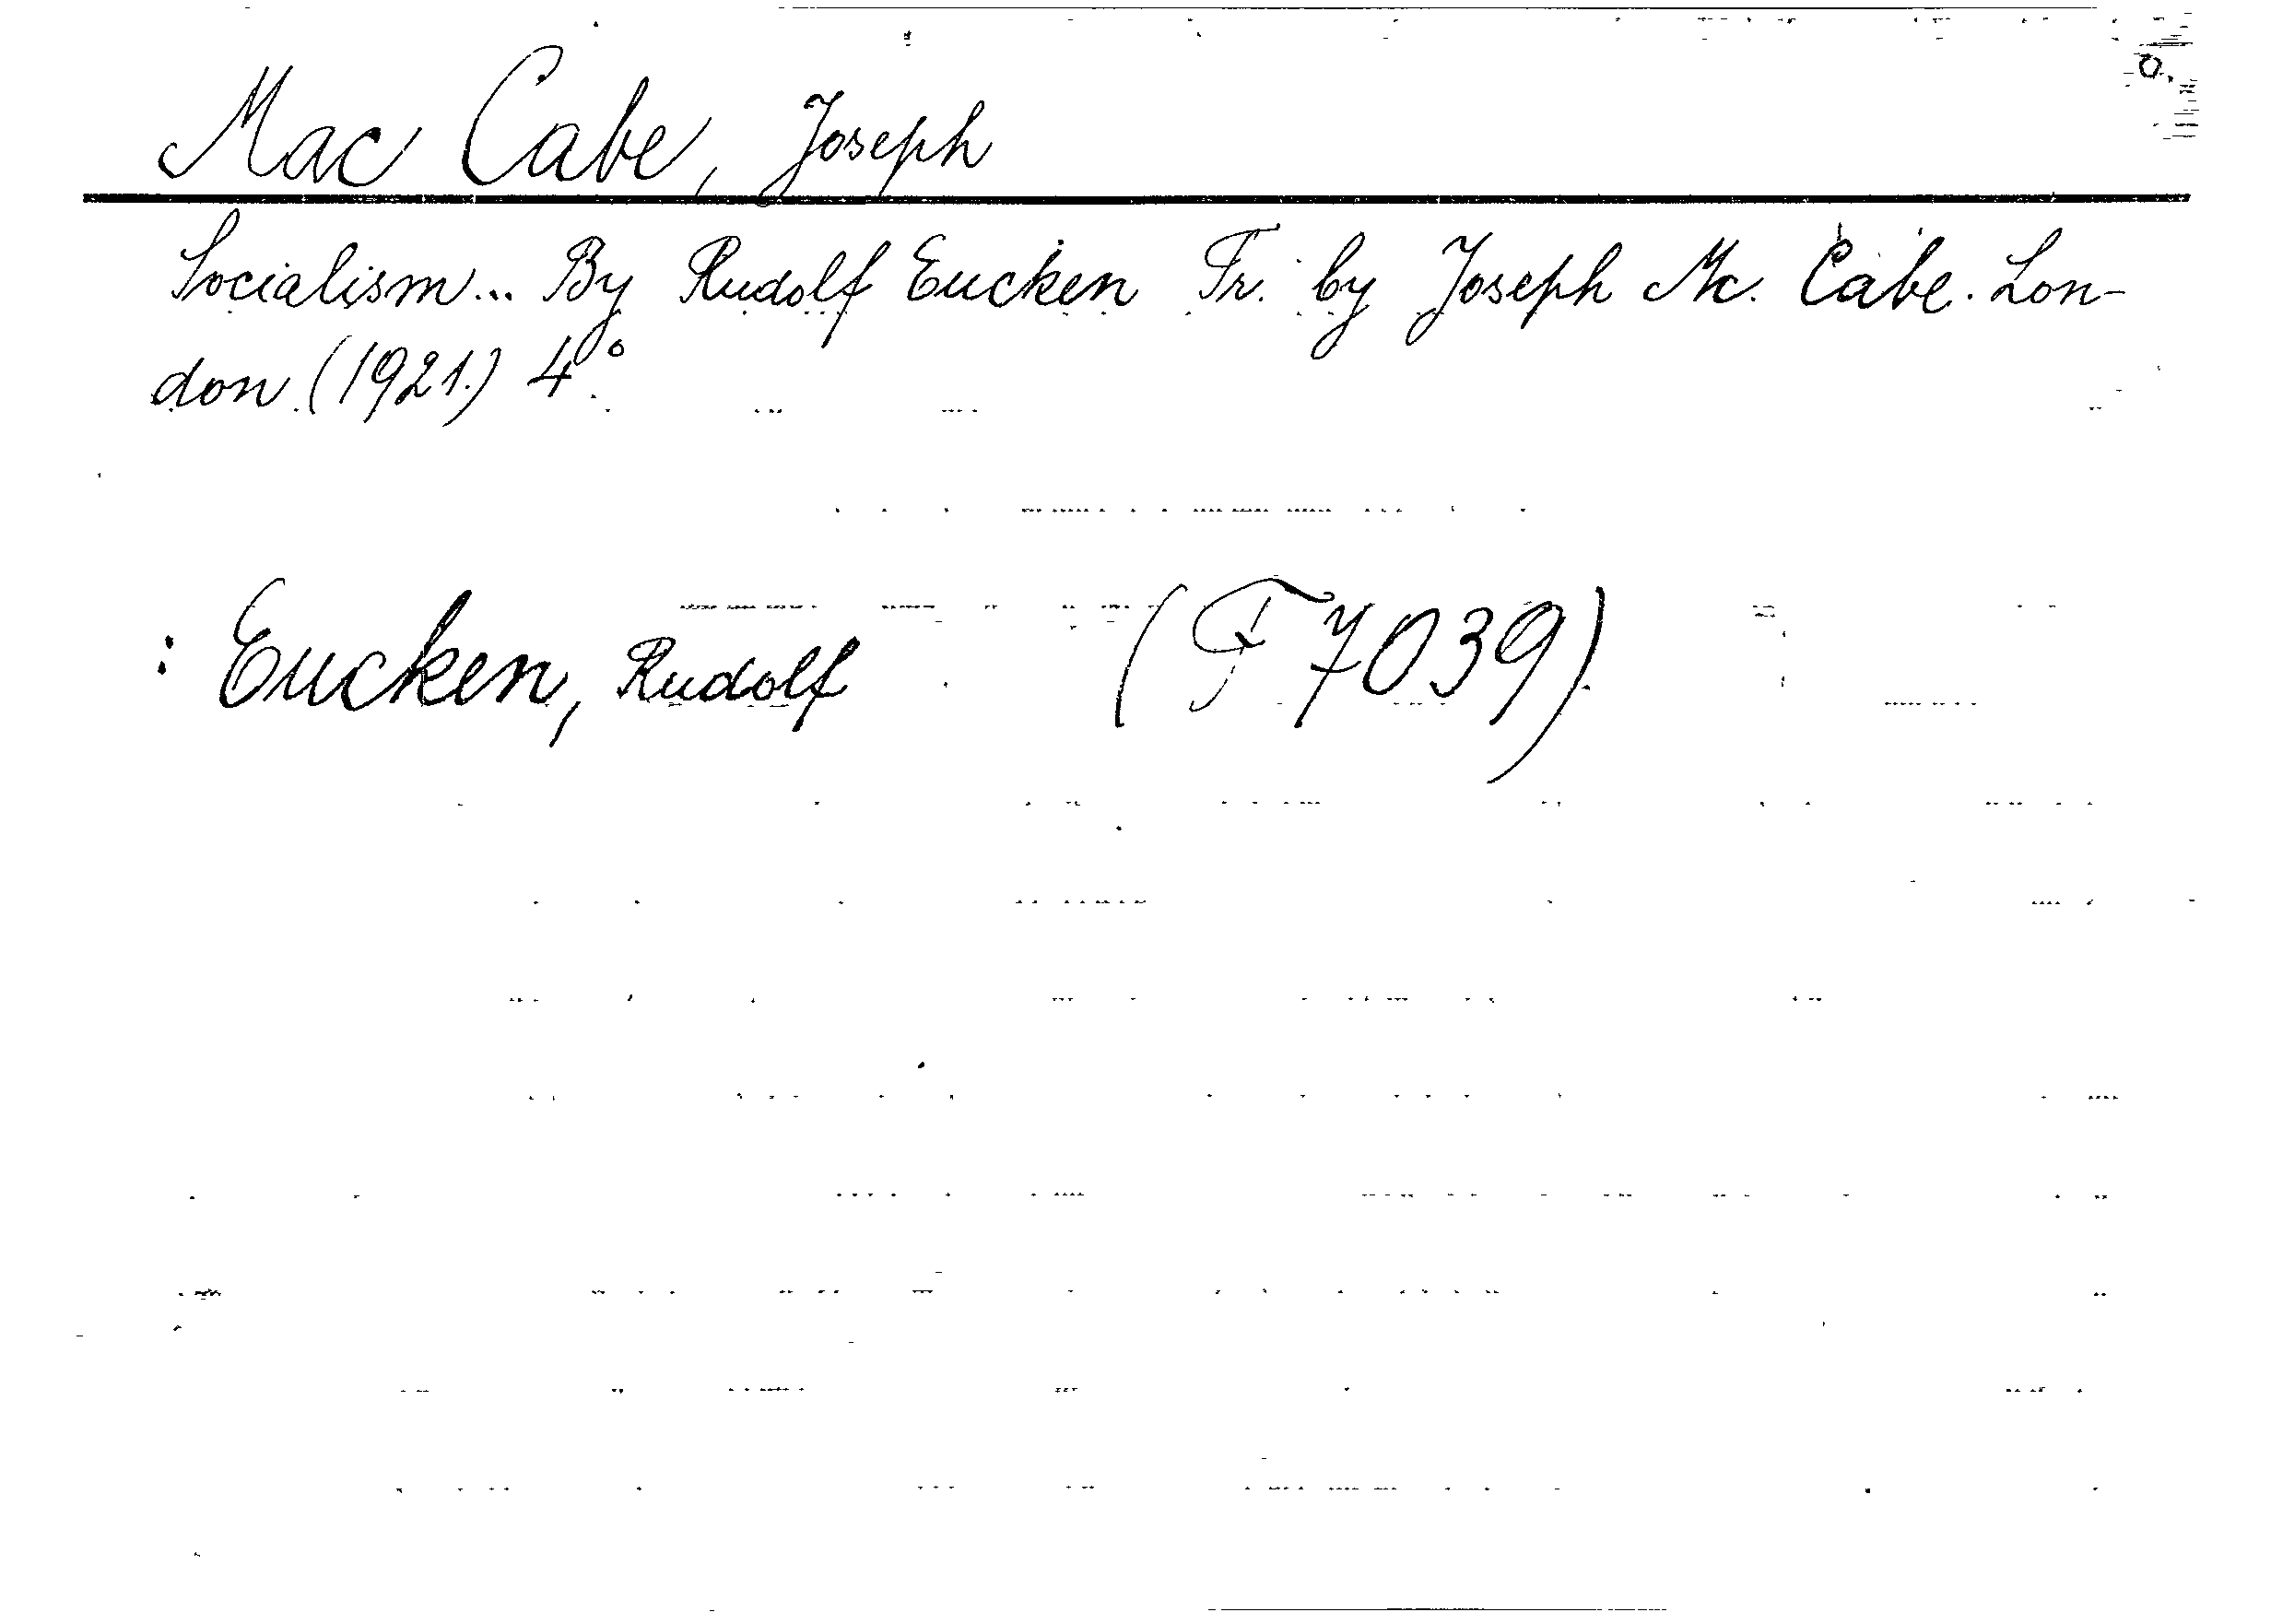 Mac Cabe, Joseph
Socialism... By Rudolf Eucken Tr. by Joseph Mc. Cabe. Lon-
don (1921.) 4°
: Eucken, Rudolf (F 7039).